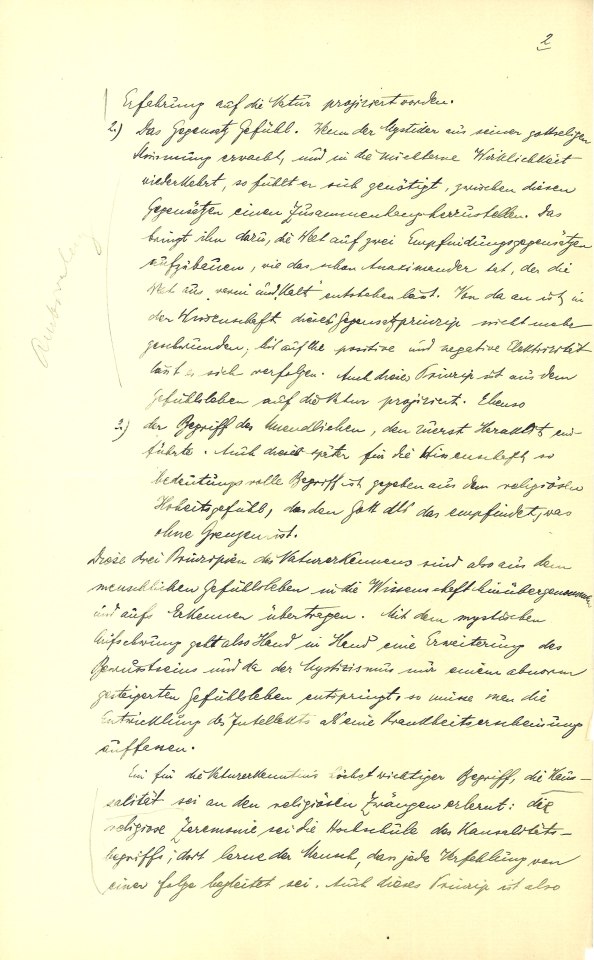 2
Erfahrung auf die Natur projiziert worden.
2.) Das Gegensatz Gefühl. Wenn der Mystiker aus seiner gottseligen
Stimmung erwacht, und in die nüchterne Wirklichkeit
wiederkehrt, so fühlt er sich genötigt, zwischen diesen
Gegensätzen einen Zusammenhang herzustellen. Das
bringt ihn dazu, die Welt auf zwei Empfindungsgegensätzen
aufzubauen, wie das schon Anaximander tat, der die
Welt aus "warm und kalt" entstehen lässt. Von da an ist in
der Wissenschaft dieses Gegensatzprinzip nicht mehr
geschwunden, bis auf die positive und negative Elektrizität
lässt es sich verfolgen. Auch dieses Prinzip ist aus dem
Gefühlsleben auf die Natur projiziert. Ebenso
3.) der Begriff des Unendlichen, den zuerst Heraklit ein-
führte. Auch dieser später für die Wissenschaft so
bedeutungsvolle Begriff ist gegeben aus dem religiösen
Hoheitsgefühl, das den Gott als das empfindet, was
ohne Grenzen ist.
Diese drei Prinzipien des Naturerkennens sind also aus dem
menschlichen Gefühlsleben in die Wissenschaft hinübergenommen
und aufs Erkennen übertragen. Mit dem mystischen
Aufschwung geht also Hand in Hand eine Erweiterung des
Bewusstseins und da der Mystizismus nur einem abnorm
gesteigerten Gefühlsleben entspringt, so müsse man die
Entwicklung des Intellekts als eine Krankheitserscheinung
auffassen.
Ein für die Naturerkenntnis höchst wichtiger Begriff, die Kau-
salität sei an den religiösen Zwängen erlernt: die
religiöse Zeremonie sei die Hochschule des Kausalitäts-
begriffs; dort lerne der Mensch, dass jede Verfehlung von
einer Folge begleitet sei. Auch dieses Prinzip ist also